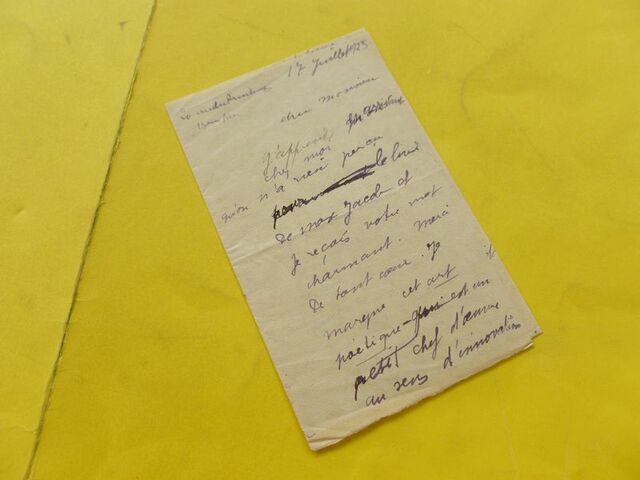 17 Juillet 1925
cher Monsieur
J'apprends
chez moi
qu'on n'a rien perçu
pour le livre
de Max Jacob et
je reçois votre mot
charmant. Merci
de tout cœur. Je
marque cet art
poétique - est un
petit chef d'œuvre
au sens d'innovation